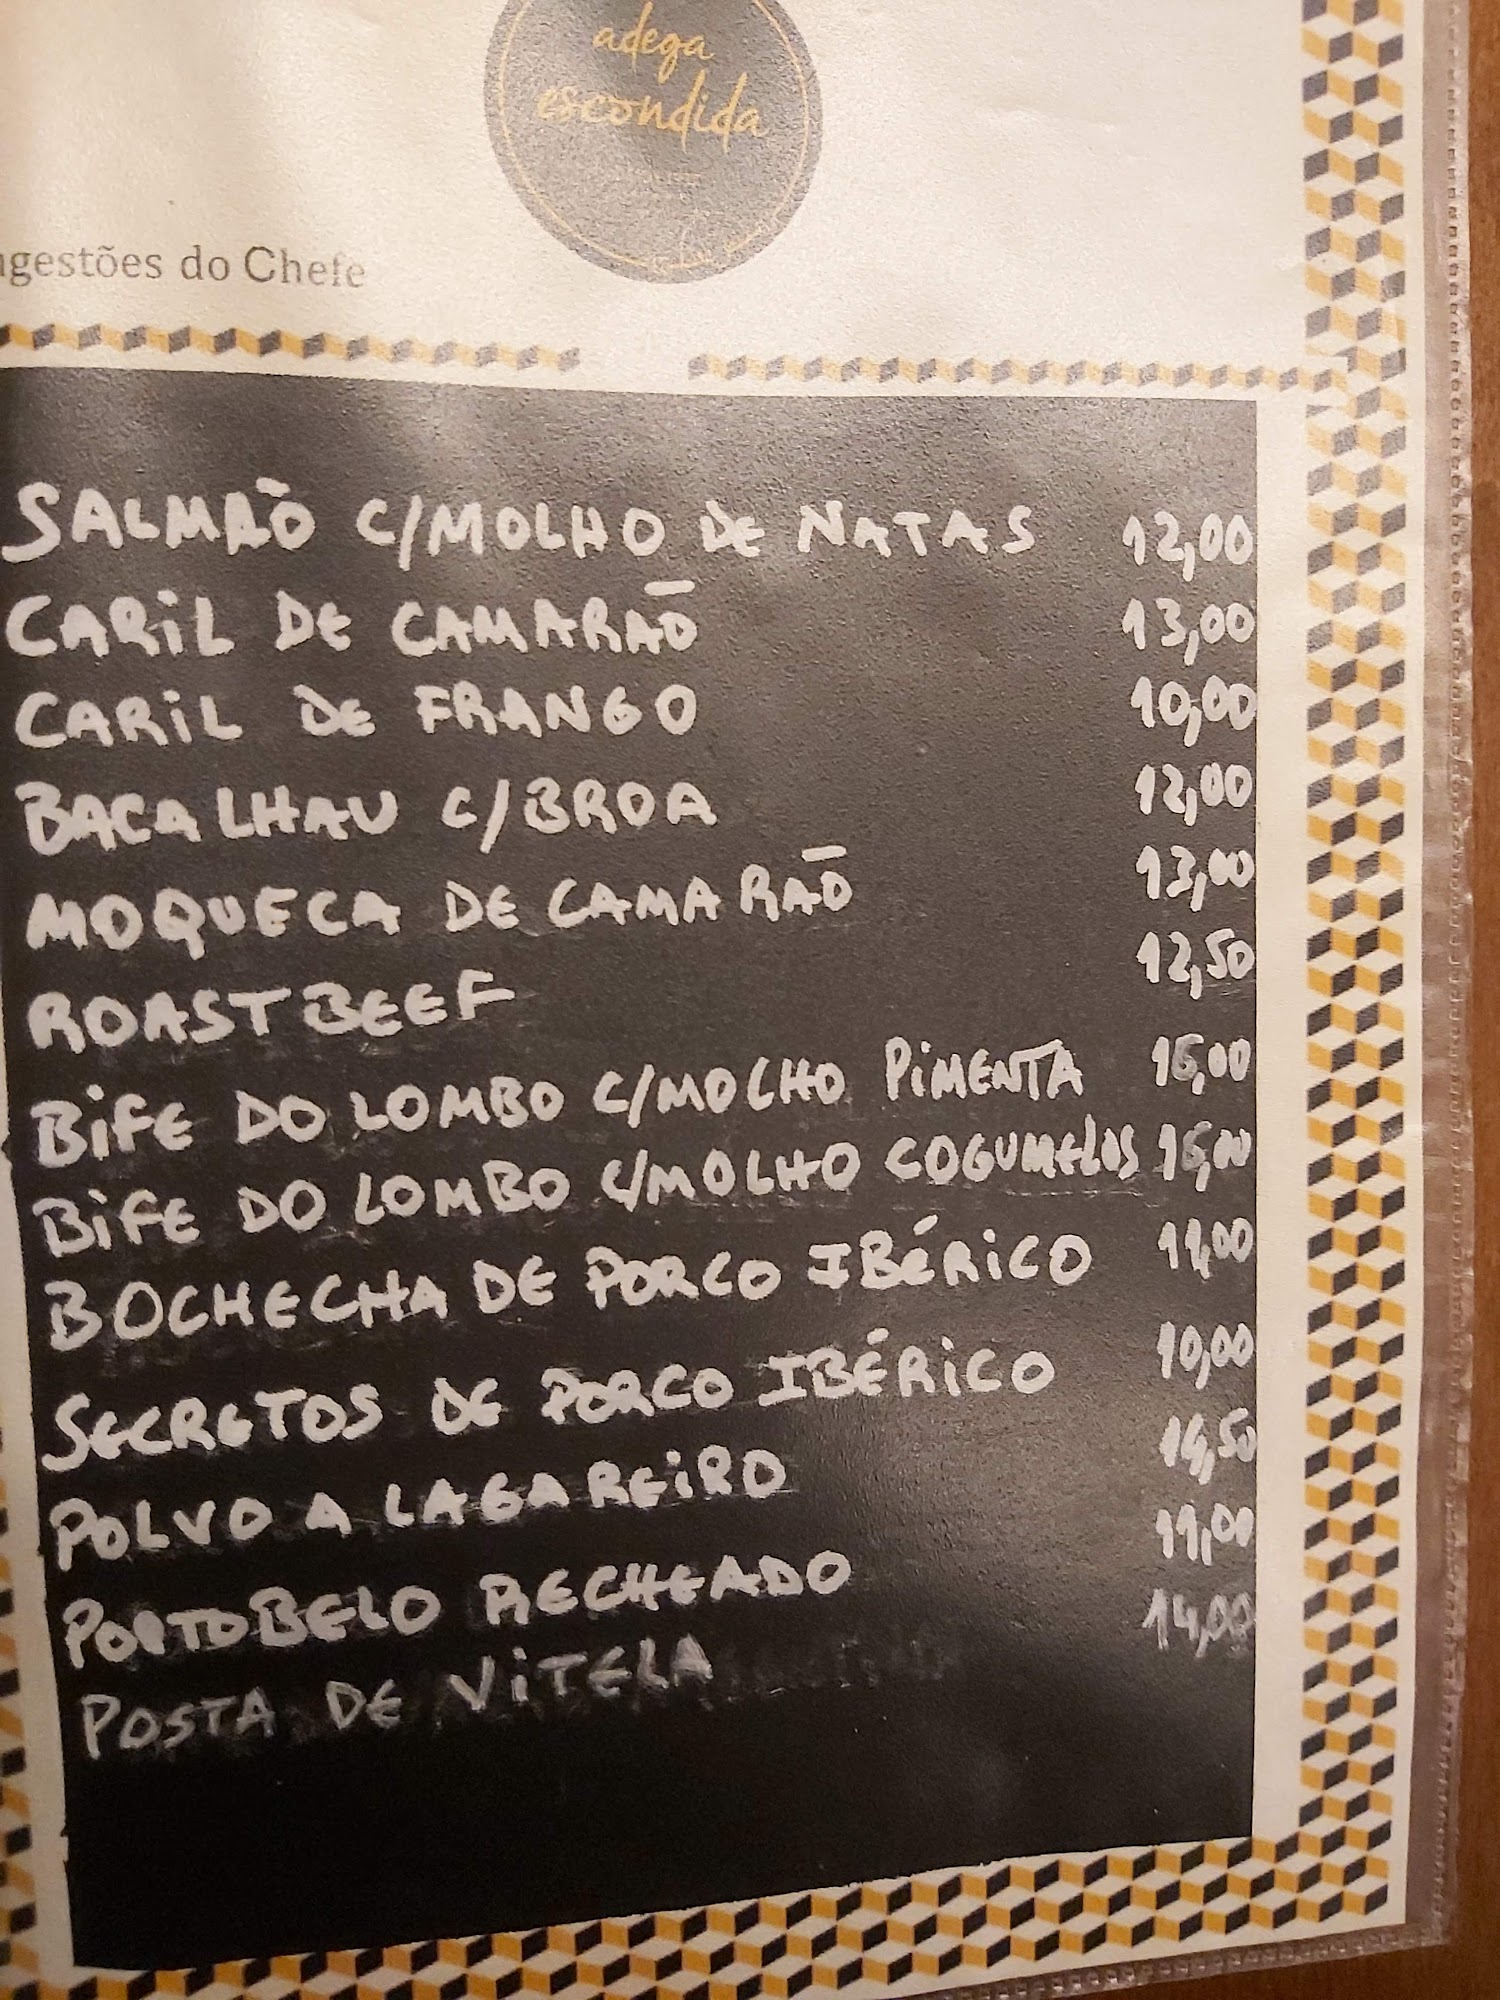 adega
escondida
ugestões do Chefe
SALMÃO C/MOLHO DE NATAS 12,00
CARiL DE CAMARÃO 13,00
CARiL DE FRANGO 10,00
BACALHAU C/BROA 12,00
MOQUECA DE CAMARÃO 13,00
ROASTBEEF 12,50
BiFE DO LOMBO C/MOLHO PiMENTA 15,00
BiFE DO LOMBO C/MOLHO COGUMELOS 15,00
BOCHECHA DE PORCO IBÉRiCO 11,00
SECRETOS DE PORCO IBÉRiCO 10,00
POLVO A LAGAREiRO 14,50
PORTOBELO RECHEADO 11,00
POSTA DE ViTELA 14,00